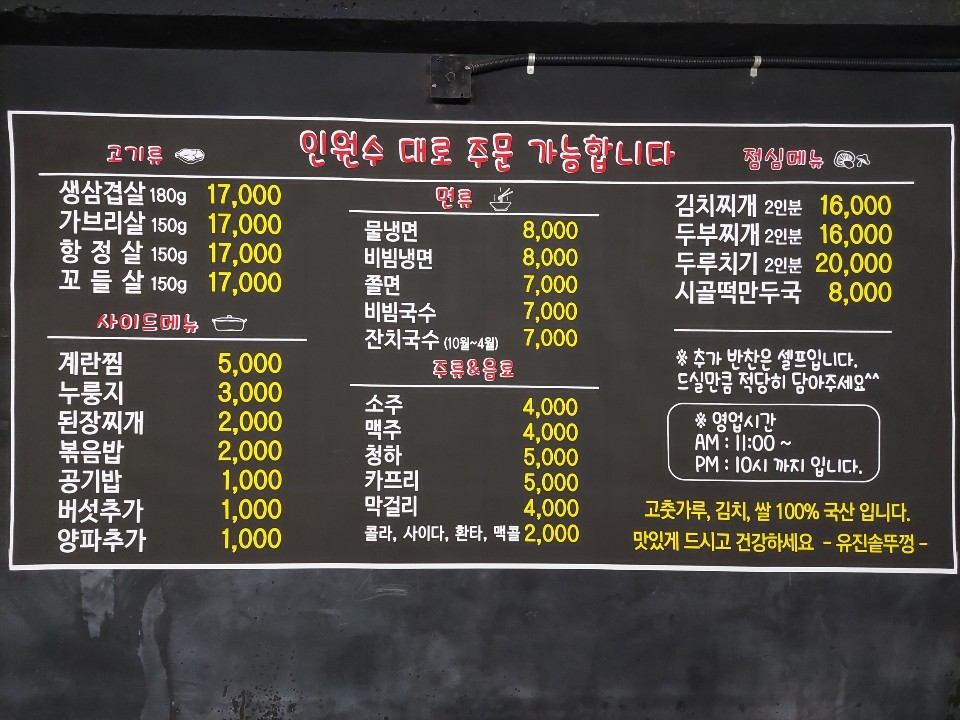 인원수 대로 주문 가능합니다
고기류
생삼겹살 180g 17,000
가브리살 150g 17,000
항정살 150g 17,000
꼬들살 150g 17,000
사이드메뉴
계란찜 5,000
누룽지 3,000
된장찌개 2,000
볶음밥 2,000
공기밥 1,000
버섯추가 1,000
양파추가 1,000
면류
물냉면 8,000
비빔냉면 8,000
쫄면 7,000
비빔국수 7,000
잔치국수 (10월~4월) 7,000
주류&음료
소주 4,000
맥주 4,000
청하 5,000
카프리 5,000
막걸리 4,000
콜라, 사이다, 환타, 맥콜 2,000
점심메뉴
김치찌개 2인분 16,000
두부찌개 2인분 16,000
두루치기 2인분 20,000
시골떡만두국 8,000
※ 추가 반찬은 셀프입니다.
드실만큼 적당히 담아주세요^^
※ 영업시간
AM : 11:00 ~
PM : 10시 까지 입니다.
고춧가루, 김치, 쌀 100% 국산 입니다.
맛있게 드시고 건강하세요 - 유진솥뚜껑 -